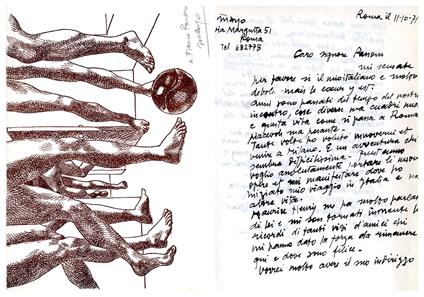 a Franco Passoni
mayo
mayo
via Margutta 51
Roma
Tel 682773
Roma il 11-10-71
Caro signore Passoni
mi scusate
per favore si il mio italiano e molto
debole mais le cœur y est.
Anni sono passati del tempo del nostro
incontro, cose diverse ma quadri ma
e questa vita come si pana a Roma
piaccola ma pesante.
Tante volte ho voluto muovermi et
venire a Milano. E un avventura che
sembra difficilissima.
voglio assolutamente
opere et mi manifestare dove ho
iniziato mio viaggio in Italia e
altre vita.
Maurice Henry mi ha molto parlato
di lei e mi son tornati in mente
ricordi di tanti visi d'amici che
mi hano dato la forza da rimanere
qui e dove sono felice.
Vorrei molto avere il suo indirizzo